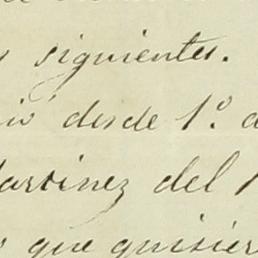 siguientes.
desde 1.º
Martinez del
que quisier